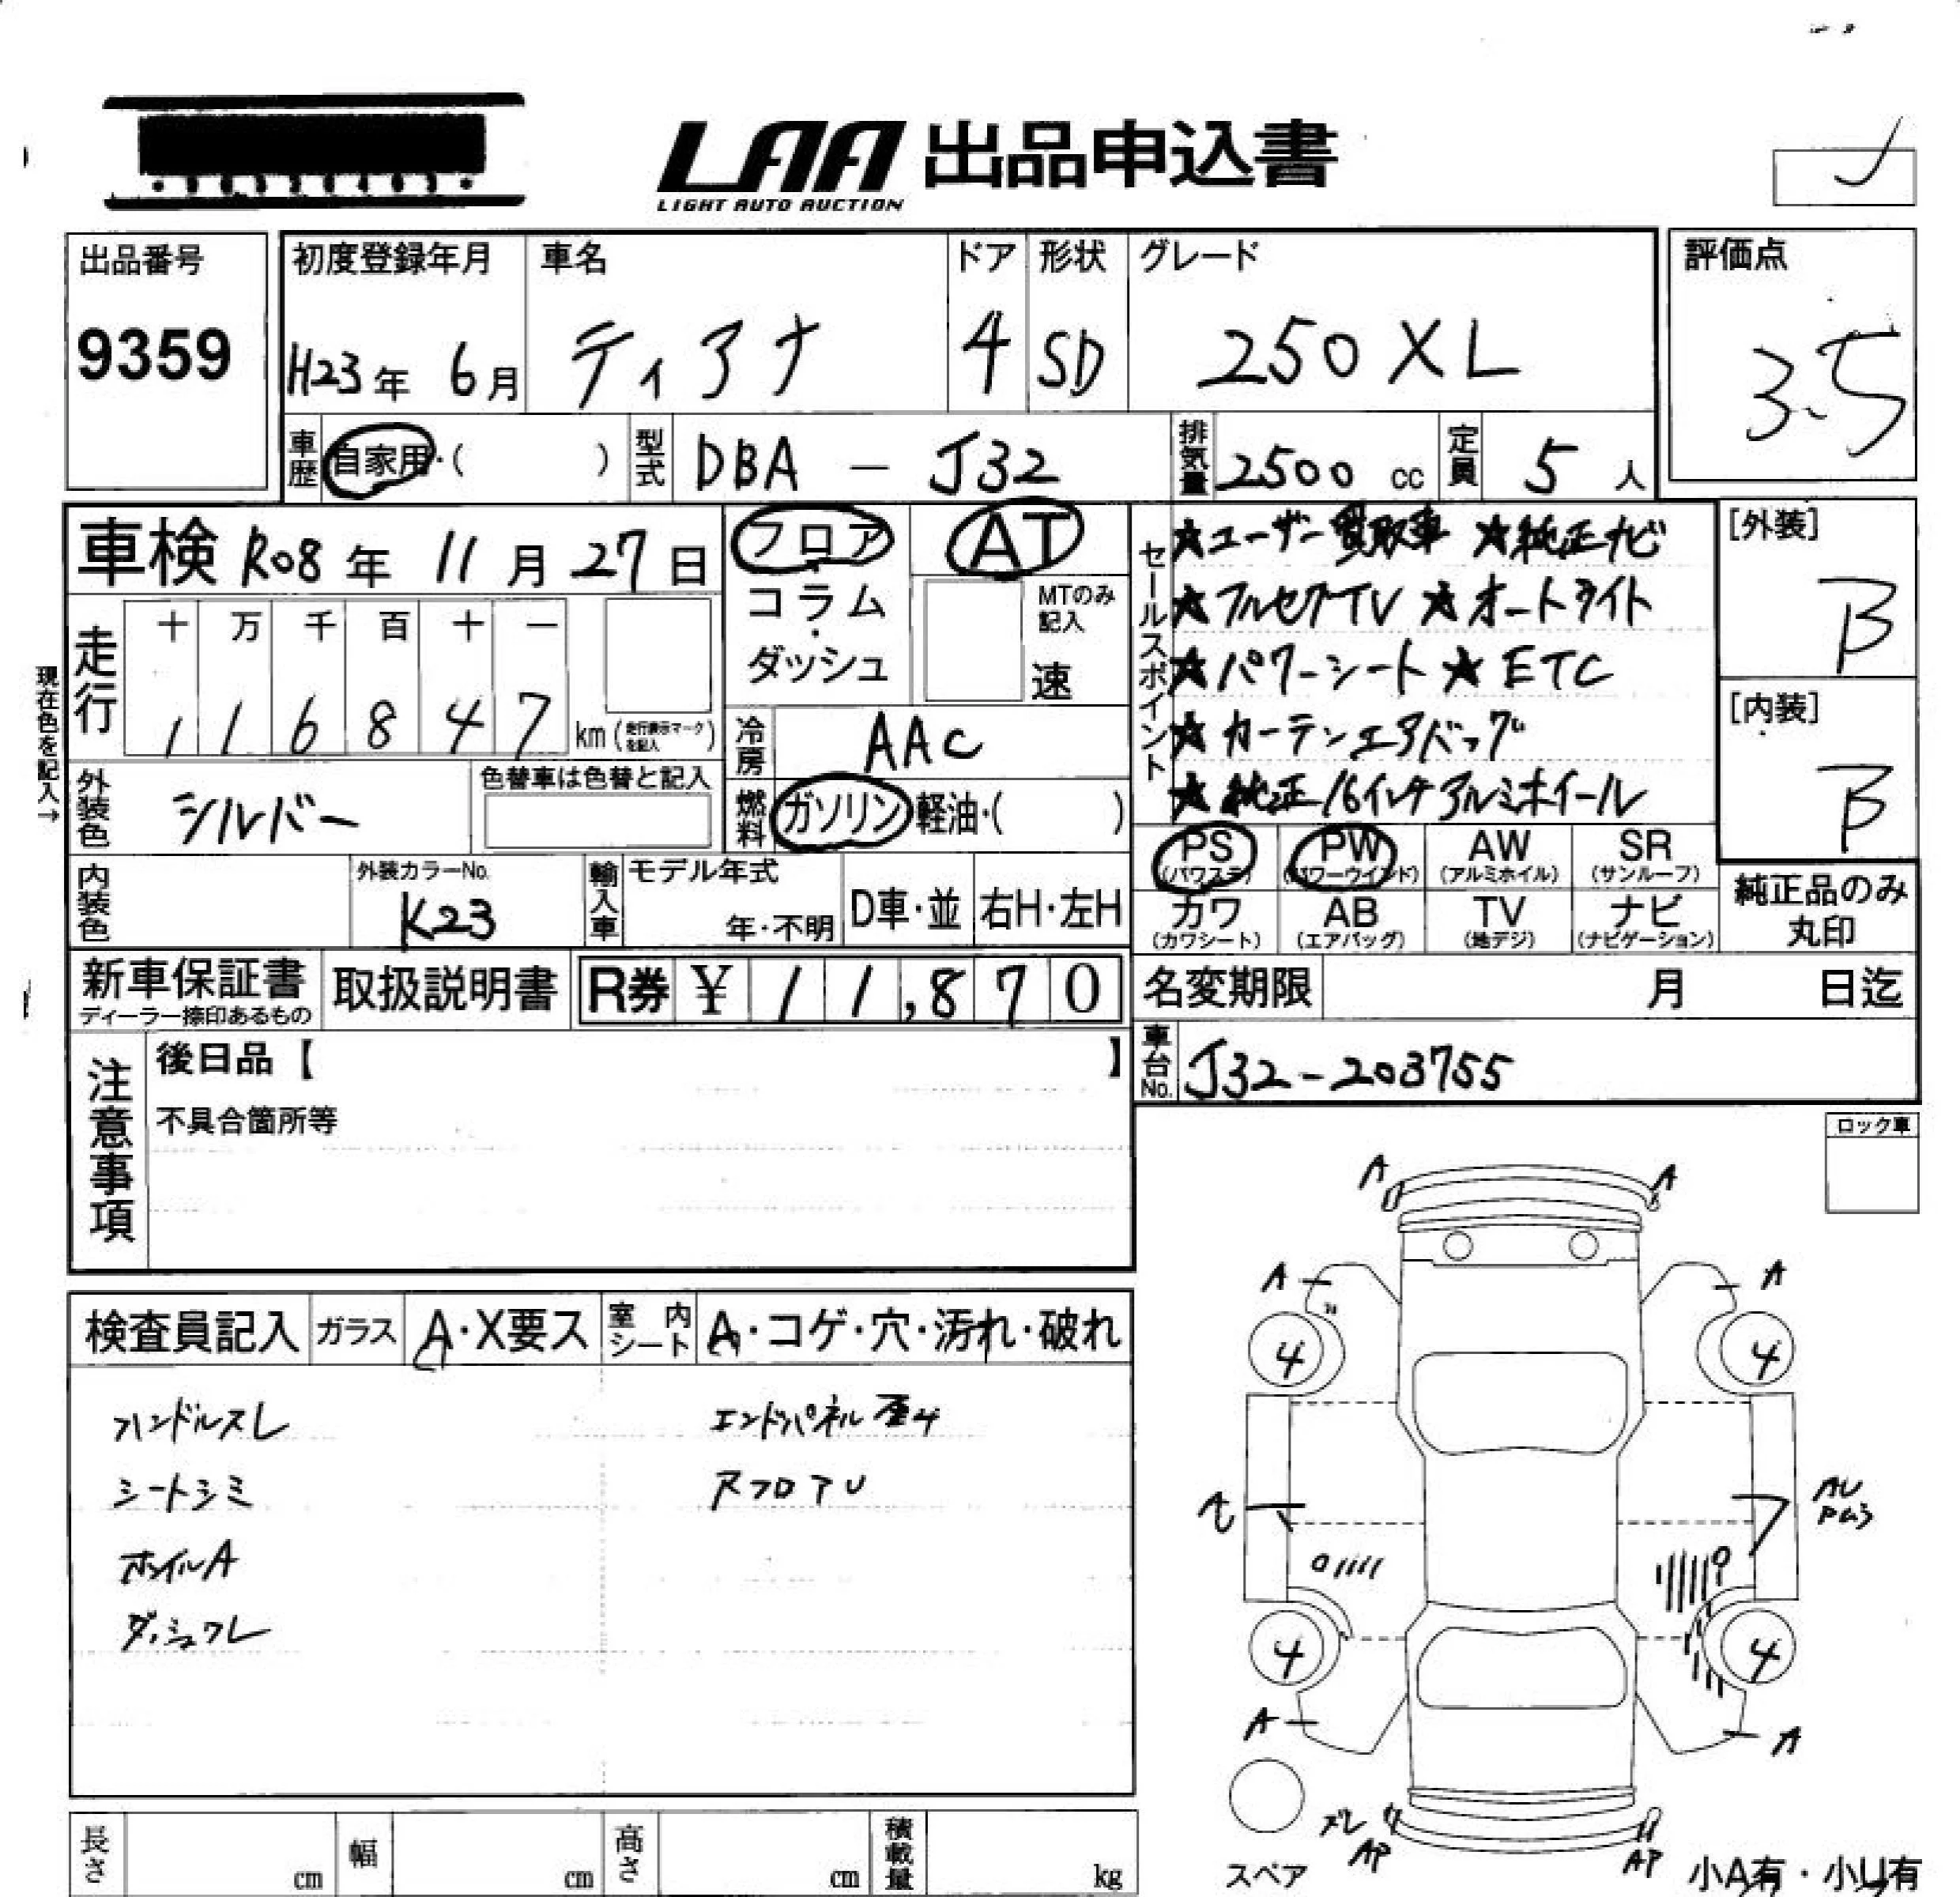 LAA 出品申込書
LIGHT AUTO AUCTION
出品番号
9359
初度登録年月
H23年 6月
車名
ティアナ
ドア
4
形状
SD
グレード
250XL
評価点
3.5
車歴
自家用・( )
型式
DBA - J32
排気量
2500 cc
定員
5 人
車検 R08年 11月 27日
フロア
コラム
ダッシュ
AT
MTのみ記入
速
セールスポイント
★ユーザー買取車 ★純正ナビ
★フルセグTV ★オートライト
★パワーシート ★ETC
★カーテンエアバッグ
★純正16インチアルミホイール
[外装]
B
[内装]
B
現在色を記入→
走行
十 万 千 百 十 一
1 1 6 8 4 7 km(走行表示マークを記入)
冷房
AAC
外装色
シルバー
色替車は色替と記入
燃料
ガソリン・軽油・( )
PS
(パワステ)
PW
(パワーウインド)
AW
(アルミホイル)
SR
(サンルーフ)
カワ
(カワシート)
AB
(エアバッグ)
TV
(地デジ)
ナビ
(ナビゲーション)
純正品のみ
丸印
内装色
外装カラーNo.
K23
輸入車
モデル年式
年・不明
D車・並
右H・左H
新車保証書
ディーラー捺印あるもの
取扱説明書
R券 ¥ 11,870
名変期限 月 日迄
車台No.
J32-203755
注意事項
後日品【 】
不具合箇所等
ロック車
検査員記入
ガラス
A・X要ス
室内シート
A・コゲ・穴・汚れ・破れ
ハンドルスレ
シートシミ
ホイルA
エンドパネル歪み
RフロアU
A
A
A
A
4
4
AU
4
4
A
A
ズレ
AP
AP
スペア
小A有・小U有
長さ cm
幅 cm
高さ cm
積載量 kg